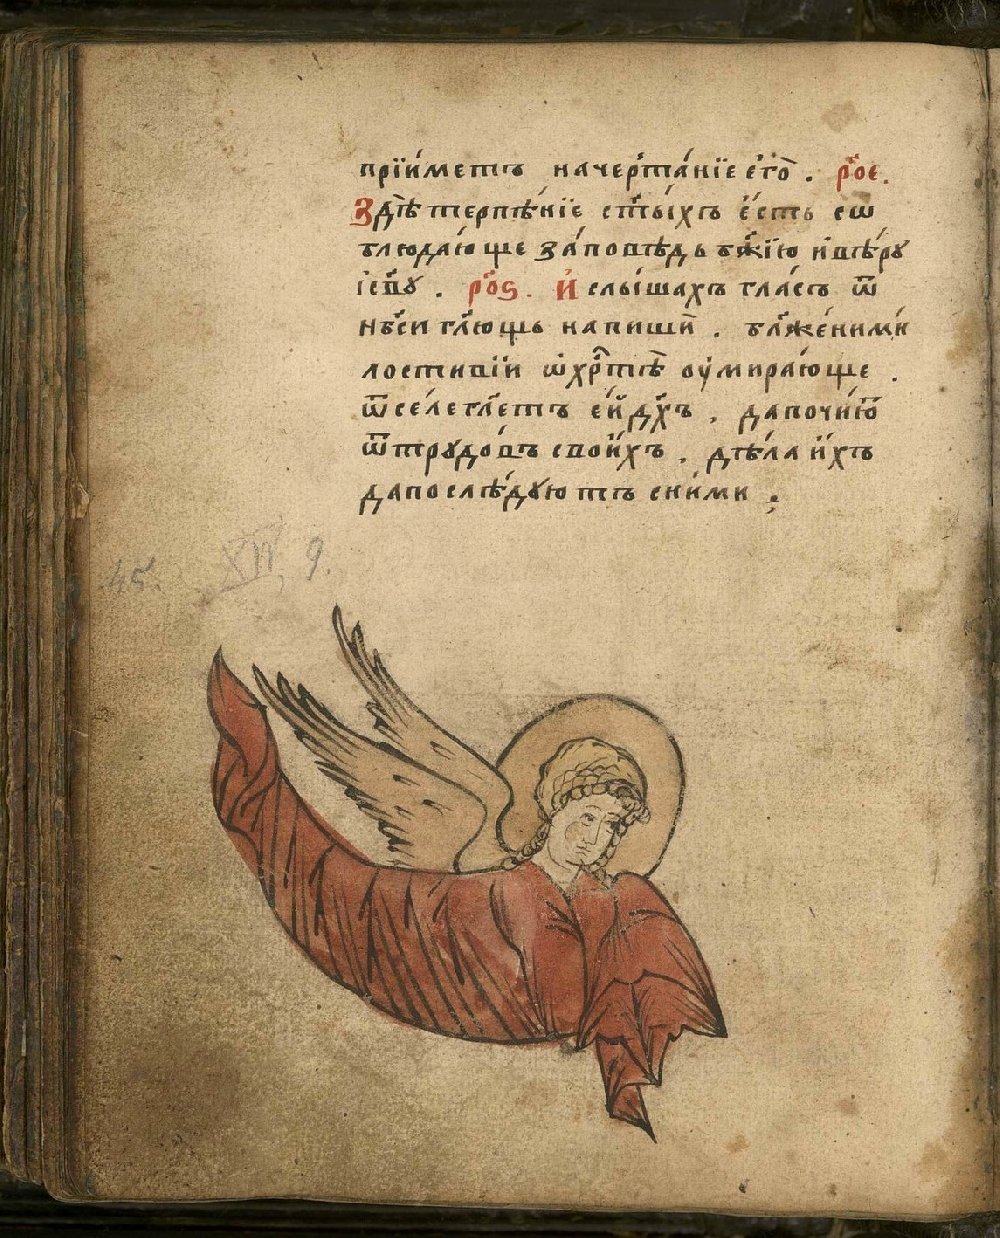 прїи́метъ начерта́нїе є҆гѡ̀ . р҃ое.
Здѣ̀ терпѣ́нїе ст҃ы́хъ є҆́сть сѡ
блюда́юще за́повѣдь бж҃їю и҆вѣ́ру
і҆св҃у . р҃оѕ. И҆ слы́шахъ гла́съ ѿ
нб҃си гл҃ющь напишѝ . бл҃же́ними
лостивїи ѡ҆хр҃тѣ̀ оу҆мира́юще .
ѿсе́ле гл҃етъ є҆й дх҃ъ . дапочи́ю҆т
ѿтрудо́въ свои́хъ . дѣла̀ и҆́хъ
дапослѣ́дуютъ сни́ми .
45. XIV, 9.